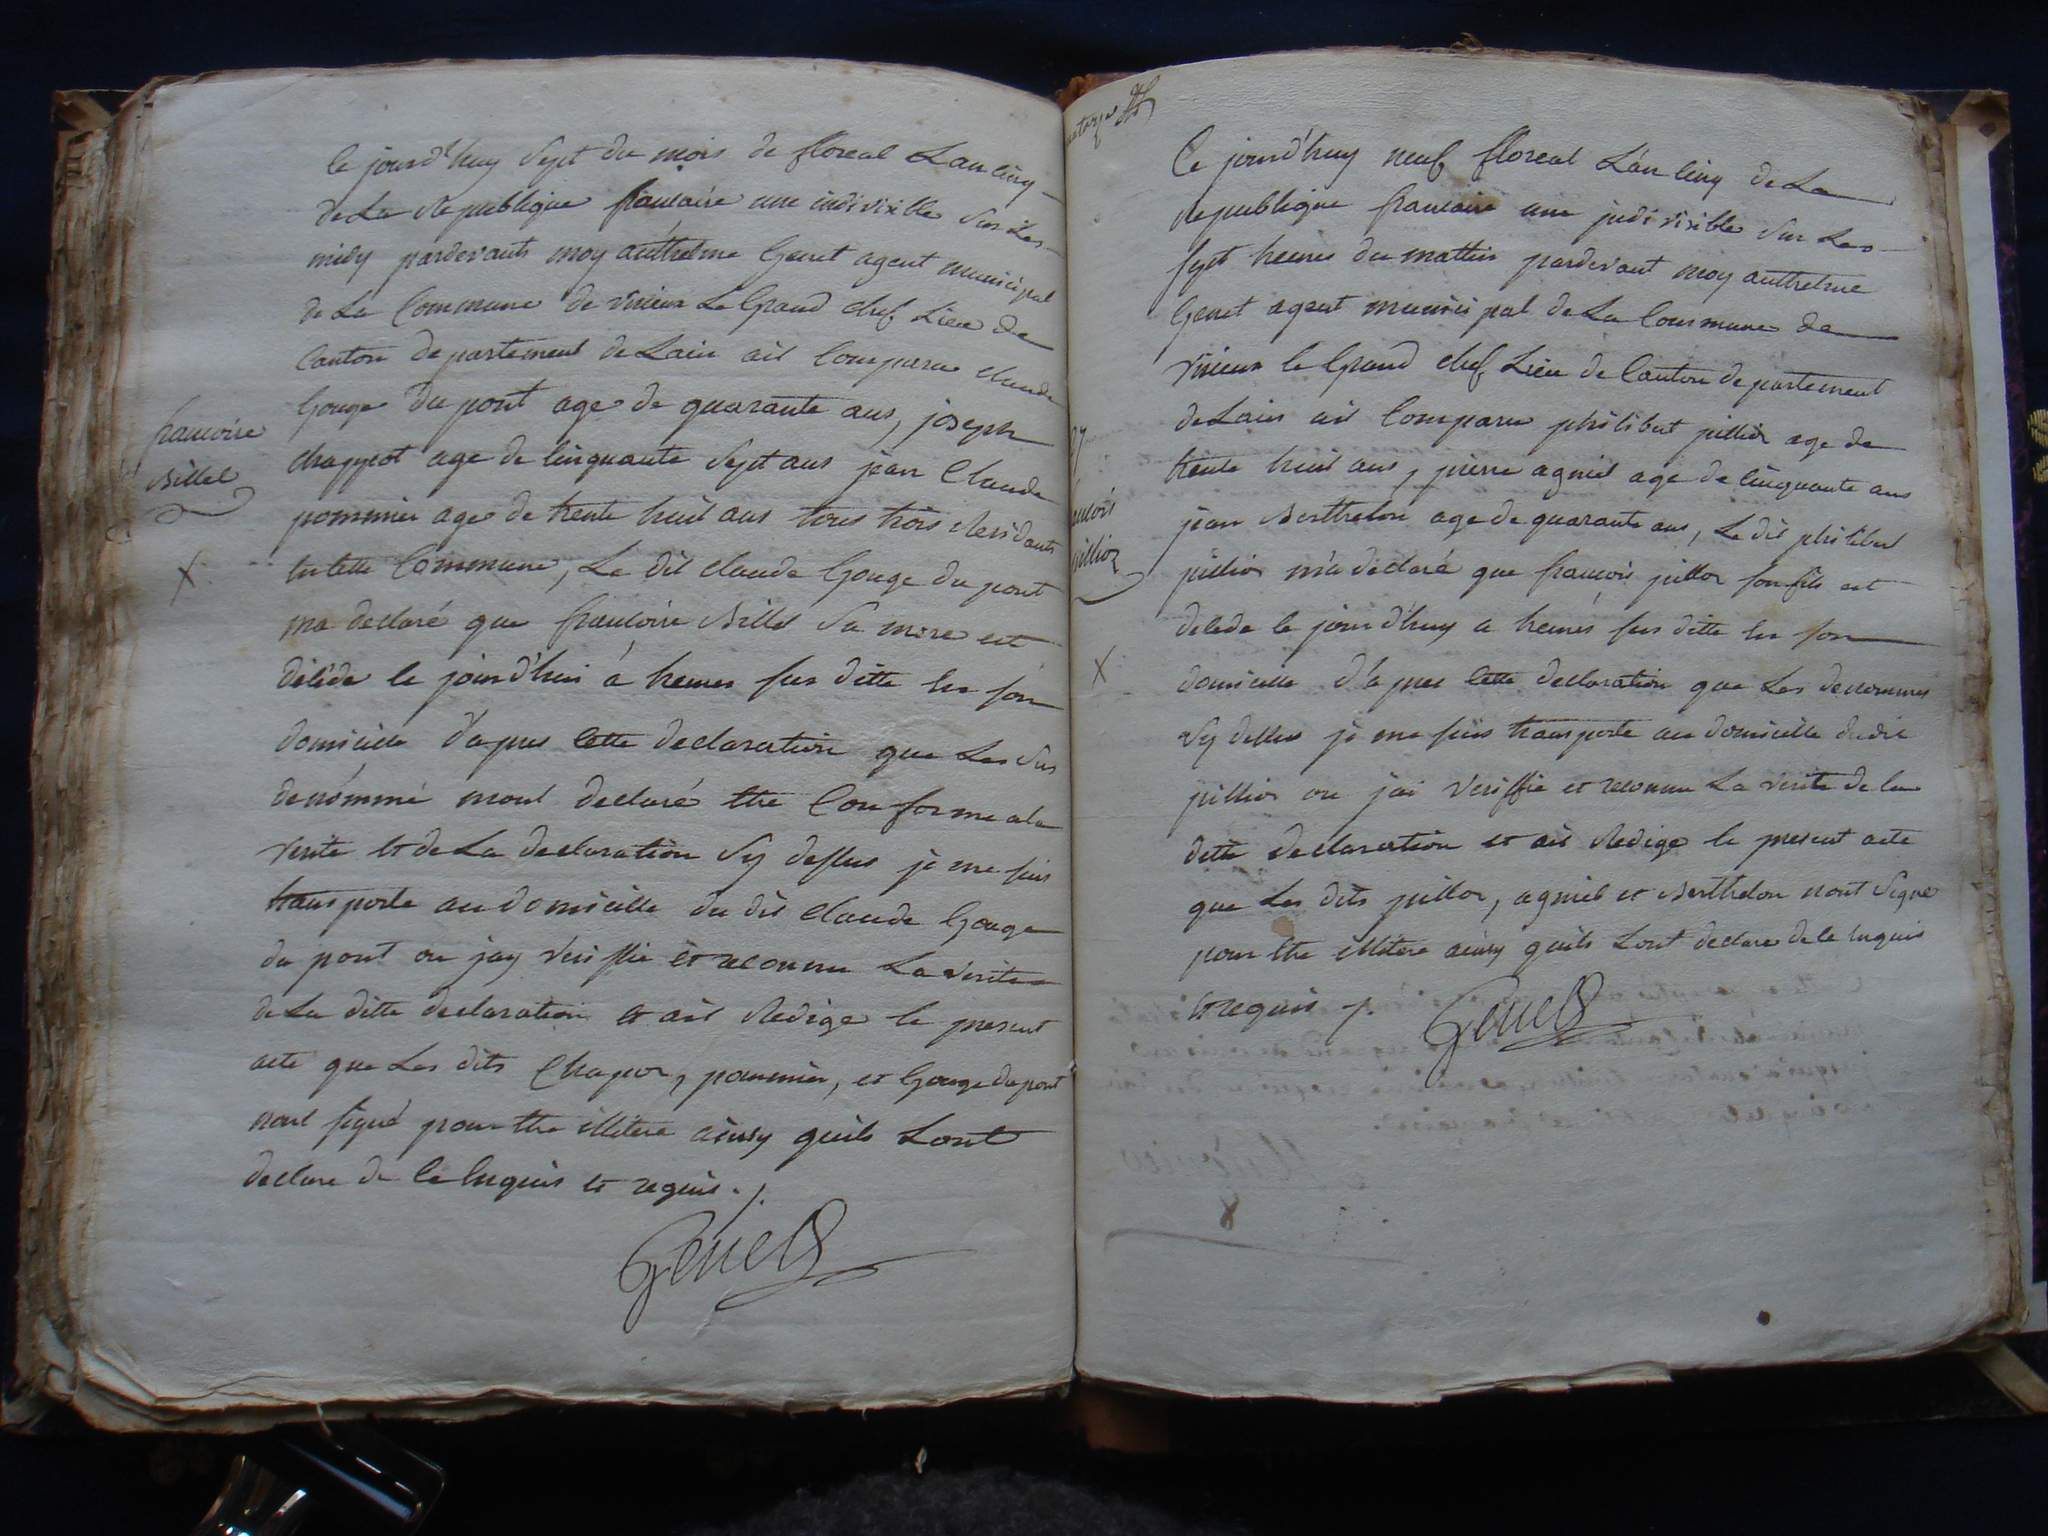 ce jourd'huy sept du mois de floreal Lan cinq
de La Republique francaise une indivisible sur Les
midy pardevants moy authelme Genet agent municipal
de La Commune de virieux Le Grand chef Lieu de
Canton departement de Lain ait Comparu claude
Gouge du pont age de quarante ans, joseph
chappot age de cinquante sept ans jean Claude
pommier age de trente huit ans tous trois Residants
en cette Commune, Le dit claude Gouge du pont
ma declaré que francoise Billet sa mere est
décéde ce jourd'hui á heures sus ditte en son
domicille d'apres cette declaration que Les sus
denómmé mont declaré etre Conforme a la
verite et de La declaration sy dessus je me suis
transporte au domicille du dit claude Gouge
du pont ou jay veriffie et reconnu La verite
de La ditte declaration et ait Redige le present
acte que Les dits Chapot, pommier, et Gouge dupont
nont signé pour etre illitere ainsy quils Lont
declare de ce enquis et requis ./.
Genet
francoise
Billet
X
Ce jourd'huy neuf floreal L'an cinq de La
republique francaise une indivisible sur Les
sept heures du mattin pardevant moy authelme
Genet agent municipal de La Commune de
virieux le Grand chef Lieu de Canton departement
de Lain ait Comparu philibert pillior age de
trente huit ans, pierre agniel age de cinquante ans
jean Berthelon age de quarante ans, Le dit philibert
pillior m'a déclaré que francois pillor son fils est
décéde ce jourd'huy a heures sus ditte en son
domicille d'apres cette declaration que Les denommes
sy dessus je me suis transporte au domicille dudit
pillior ou jai veriffie et reconnu La verite de la
ditte declaration et ait Redige le present acte
que Les dits pillor, agniel et Berthelon nont signé
pour etre illitere ainsy quils Lont declare de ce enquis
et requis ./.
Genet
X